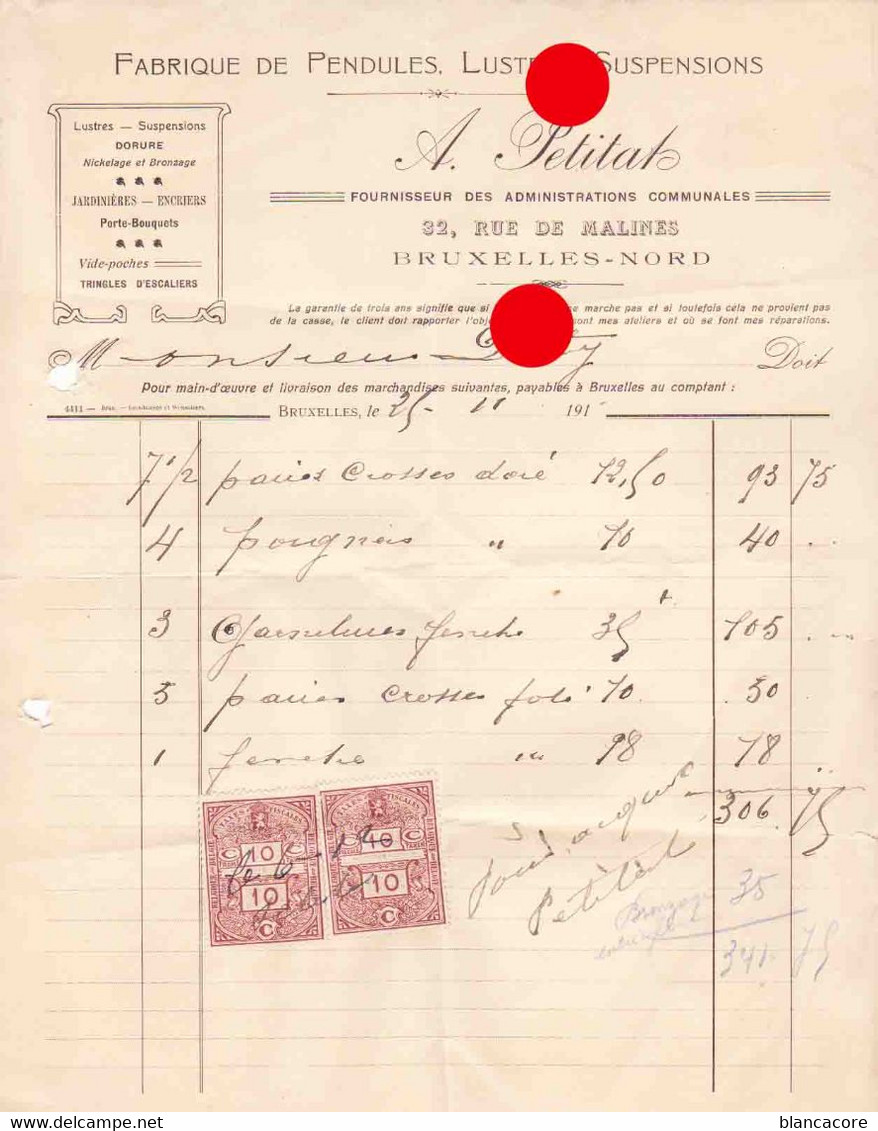 FABRIQUE DE PENDULES, LUST SUSPENSIONS
Lustres — Suspensions
DORURE
Nickelage et Bronzage
JARDINIÈRES — ENCRIERS
Porte-Bouquets
Vide-poches
TRINGLES D'ESCALIERS
A. Petitat
FOURNISSEUR DES ADMINISTRATIONS COMMUNALES
32, RUE DE MALINES
BRUXELLES-NORD
La garantie de trois ans signifie que si ne marche pas et si toutefois cela ne provient pas
de la casse, le client doit rapporter l'obj sont mes ateliers et où se font mes réparations.
Monsieur Doit
Pour main-d'œuvre et livraison des marchandises suivantes, payables à Bruxelles au comptant :
4411 —
BRUXELLES, le 25 - 11 191
7 1/2 paires Crosses doré 12,50 93 75
4 pougnies " 10 40 ..
3 35 105 ..
paires Crosses 10
1
306 75
TAXES FISCALES TAXES FISCALES
10 10
10 10
C C
Pour acquit
Petitat
Bronzage 35
341. 75
blancacore